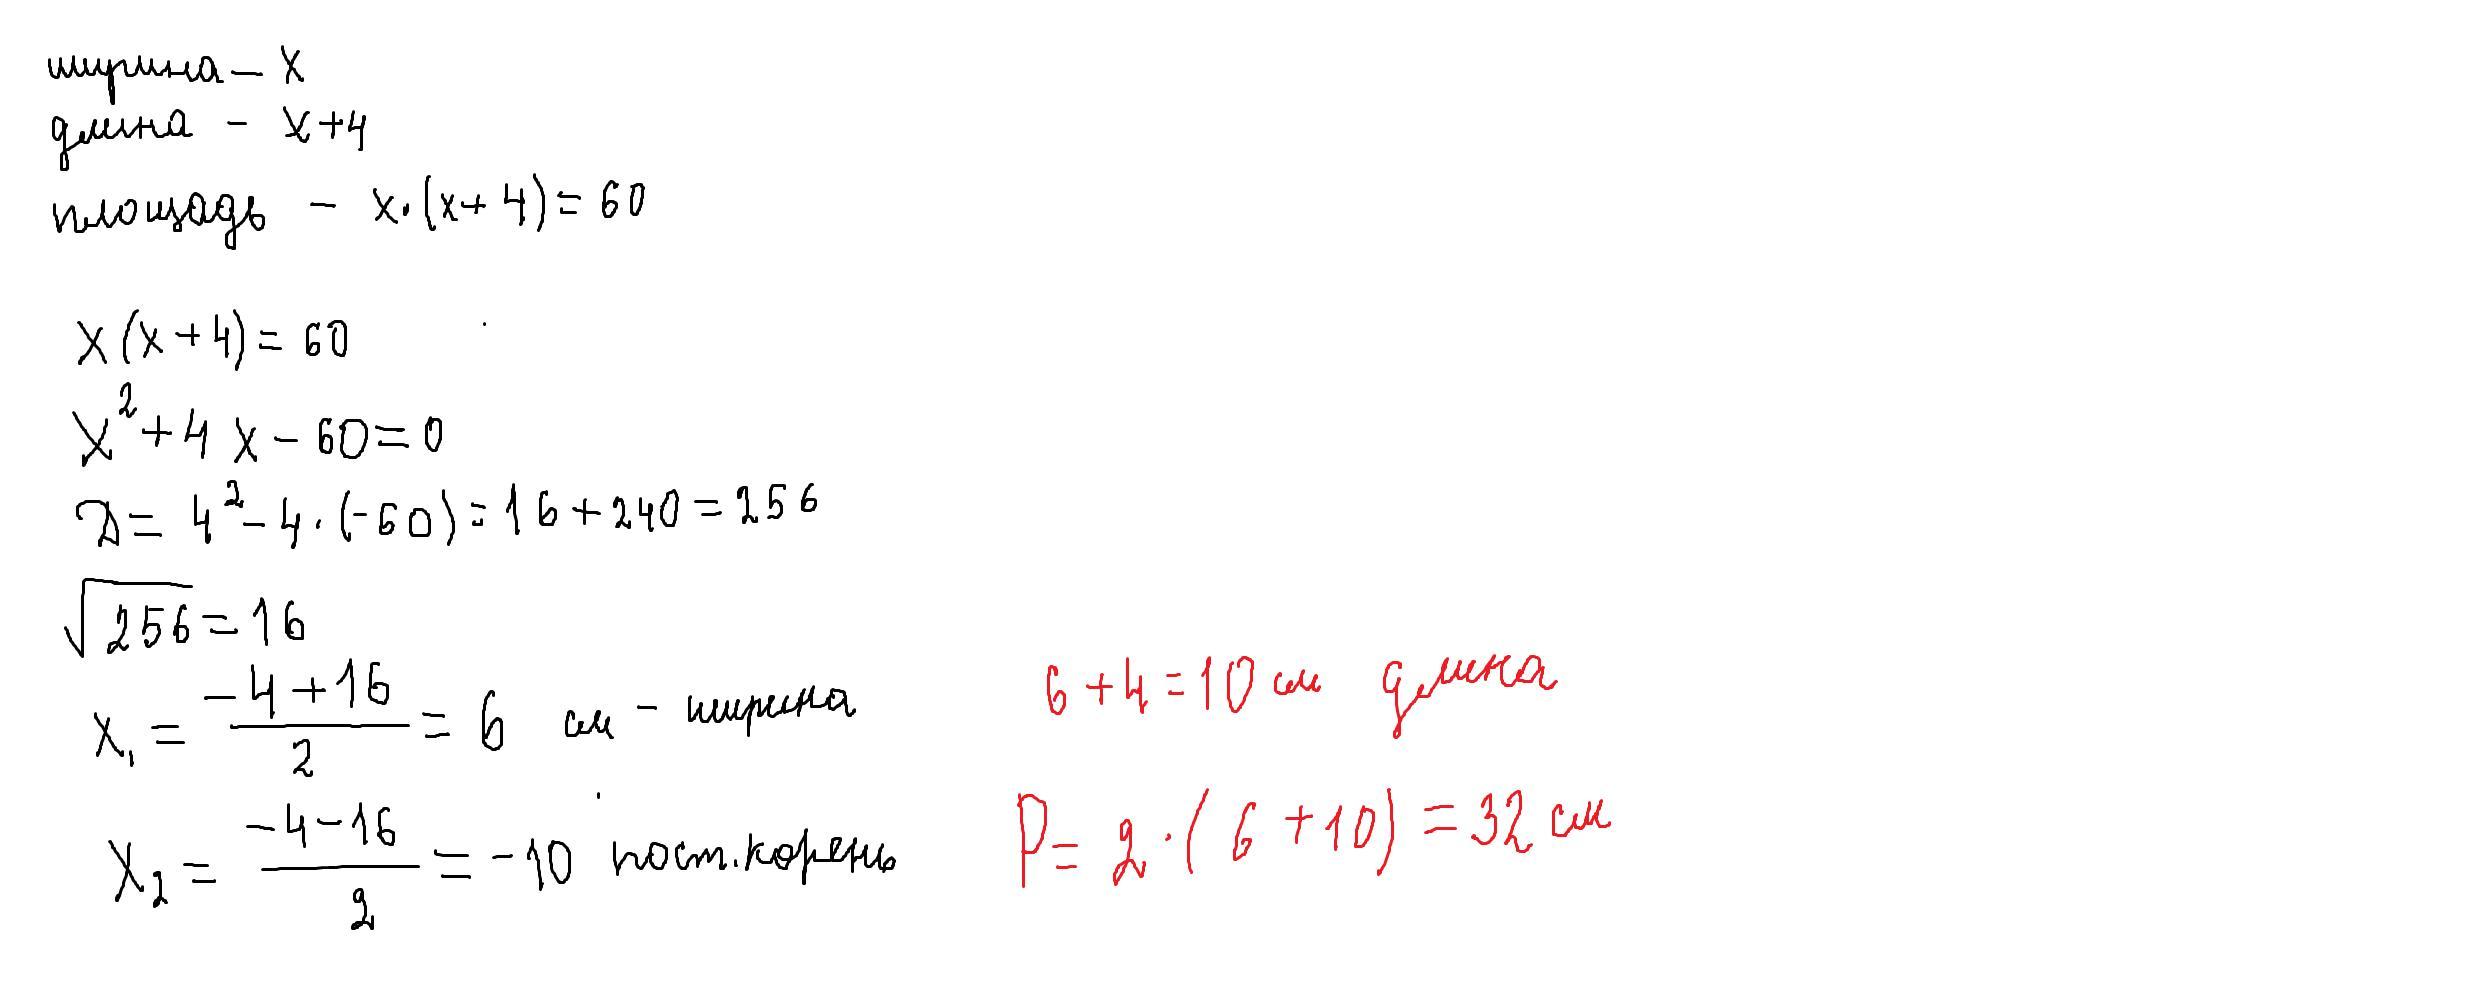 ширина – x
длина – x+4
площадь – x·(x+4)=60
x(x+4)=60
x²+4x–60=0
D=4²–4·(–60)=16+240=256
√256=16
x₁=(–4+16)/2=6 см – ширина
x₂=(–4–16)/2=–10 пост.корень
6+4=10 см длина
P=2·(6+10)=32 см